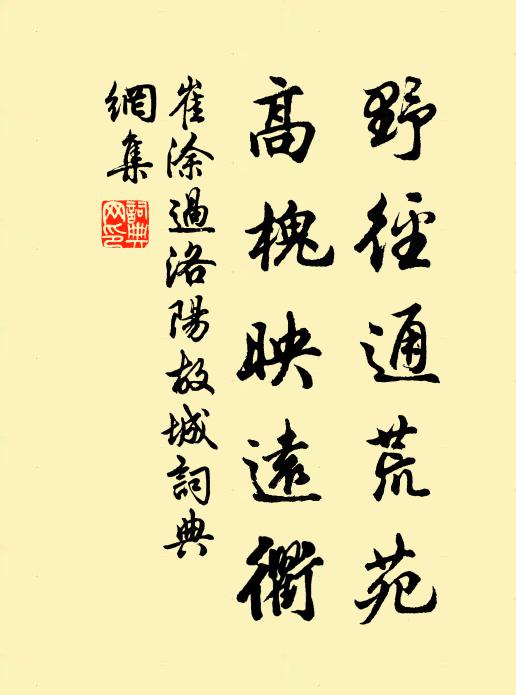 野徑通荒苑
高槐映遠衢
崔涂過洛陽故城詞典
網集
詞典
网印